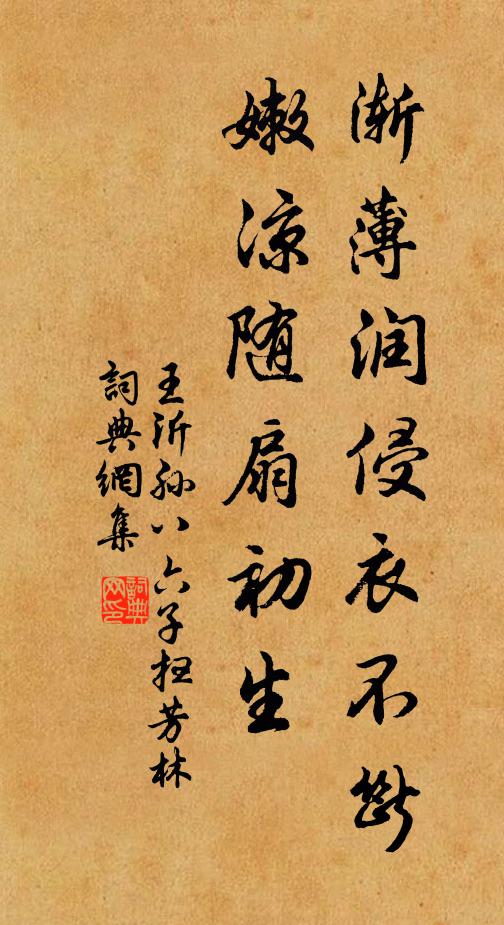 渐薄润侵衣不断
嫩凉随扇初生
王沂孙八六子扫芳林
詞典網集
詞典網印